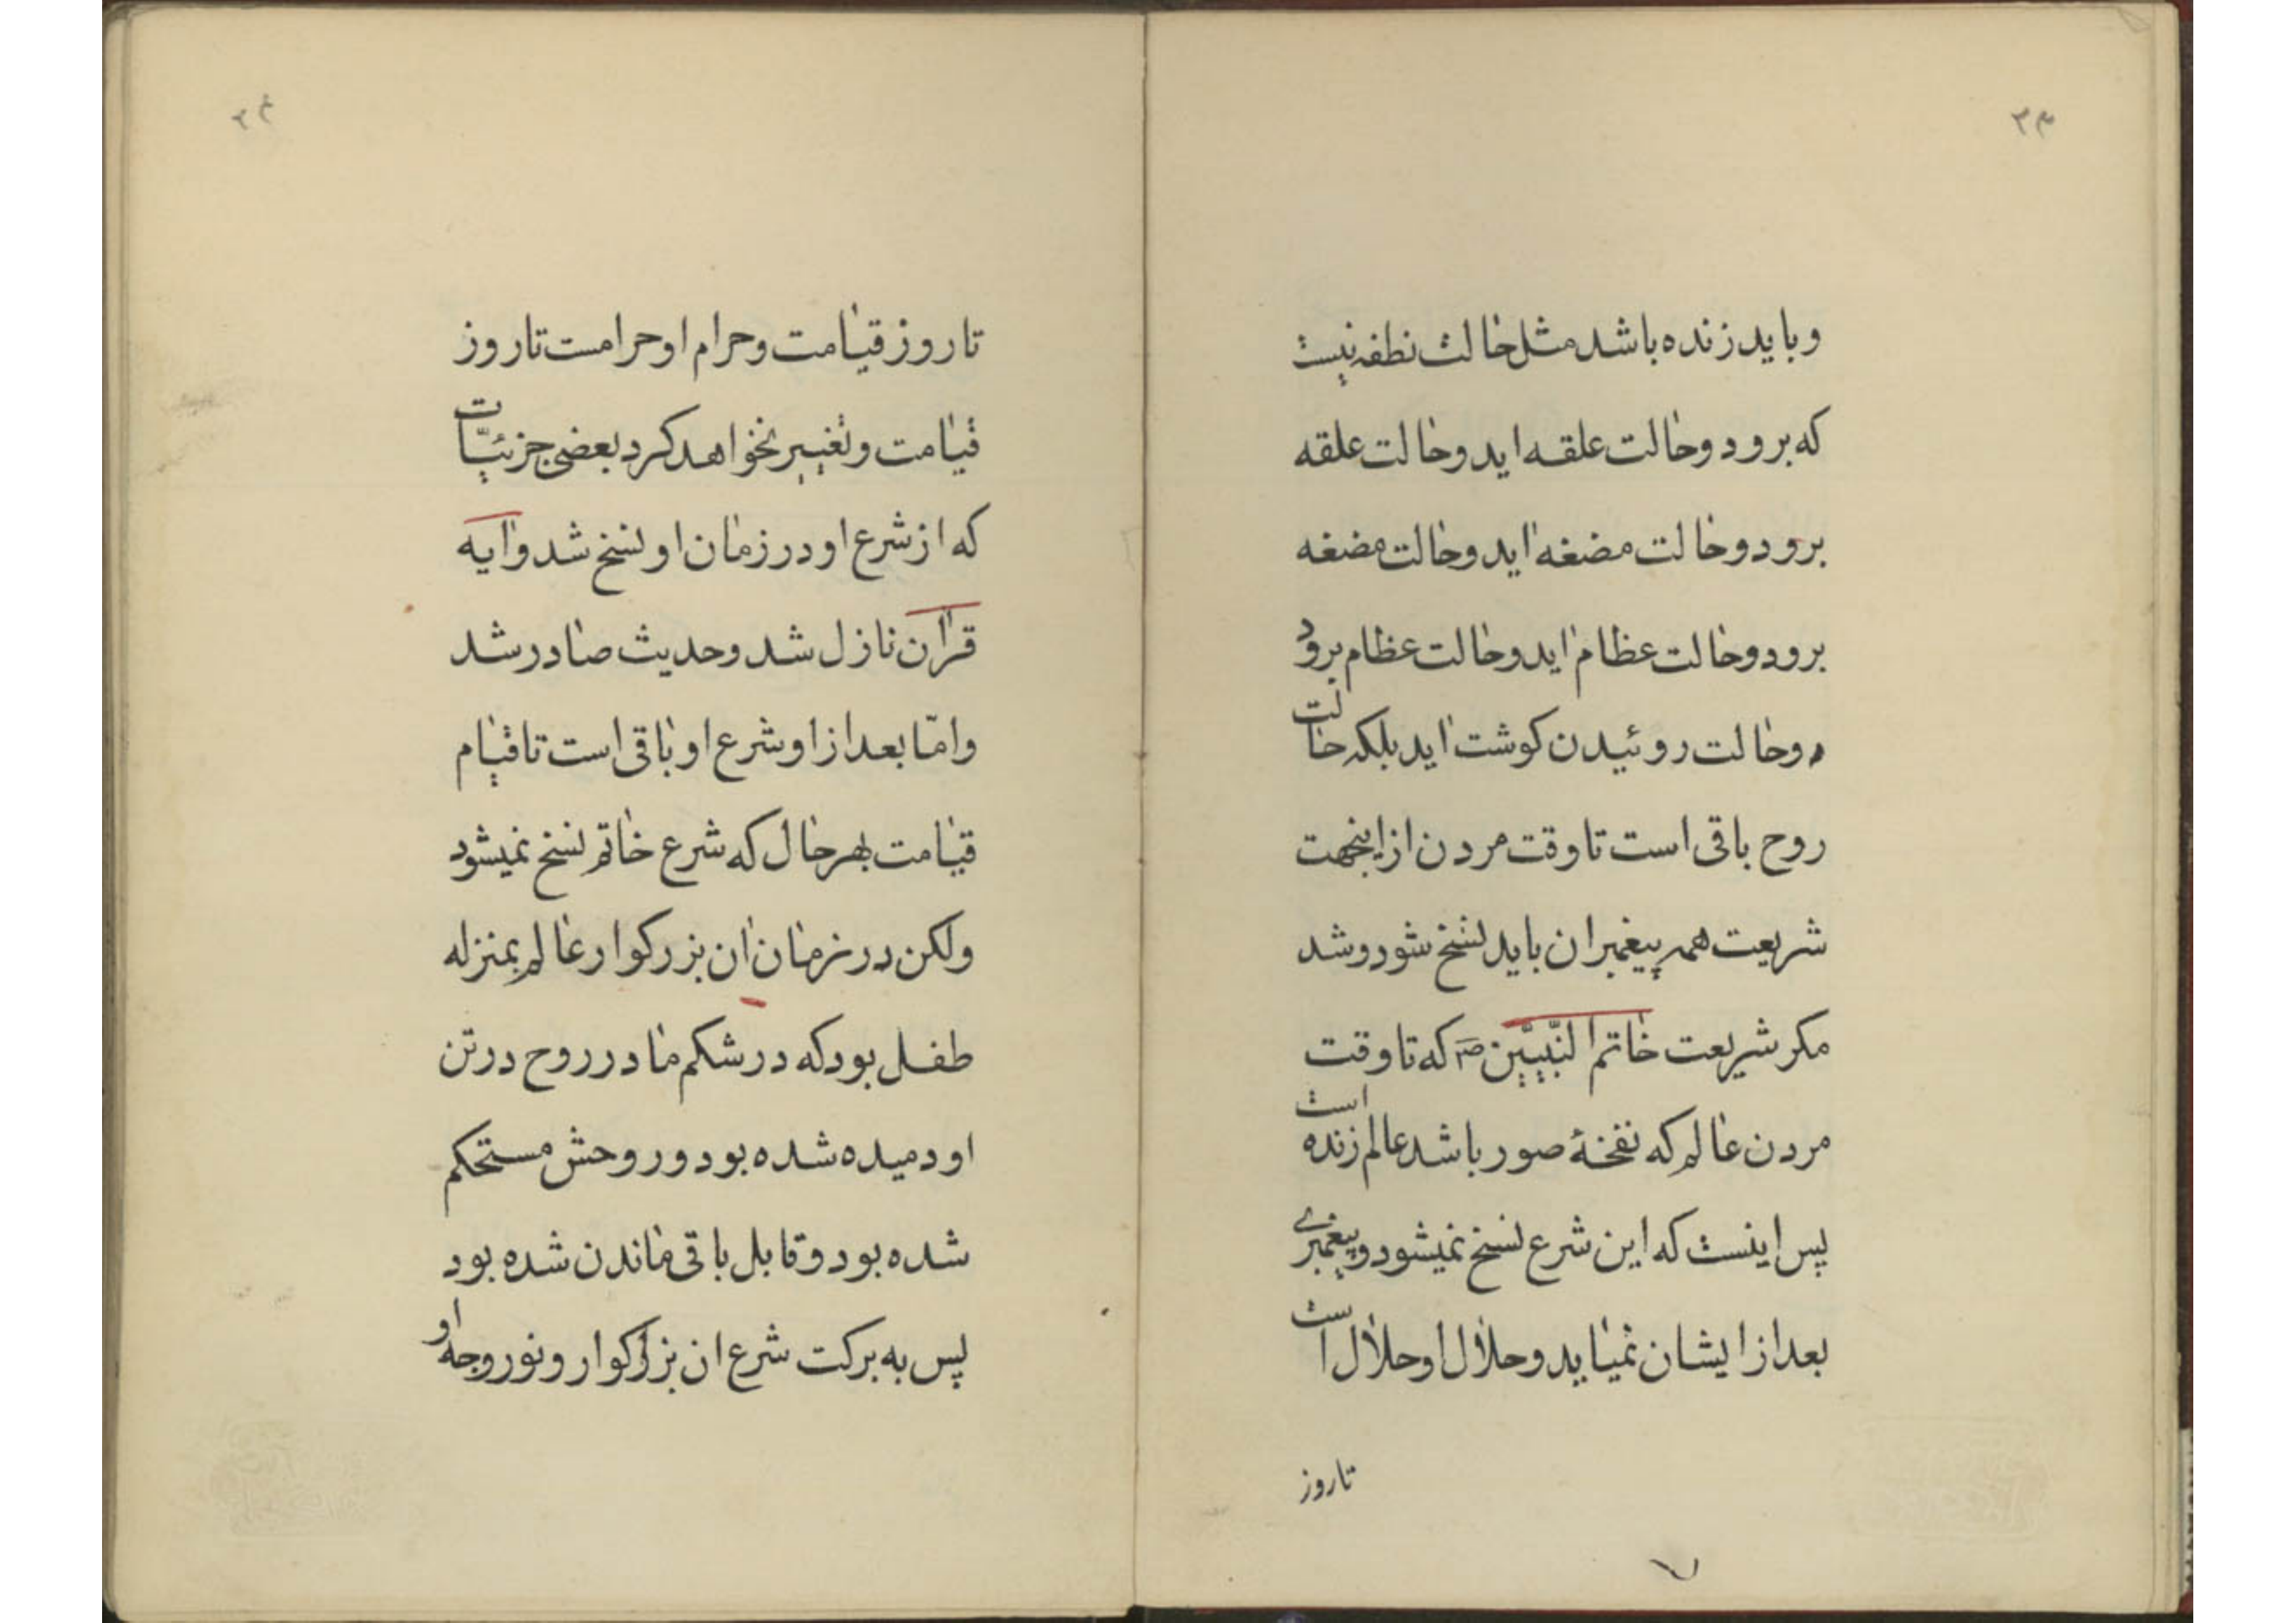 ۲۳
و باید زنده باشد مثل حالت نطفه نیست
که برود و حالت علقه اید و حالت علقه
برود و حالت مضغه اید و حالت مضغه
برود و حالت عظام اید و حالت عظام برود
و حالت روئیدن کوشت اید بلکه حالت
روح باقی است تا وقت مردن از اینجهت
شریعت همه پیغمبران باید نسخ شود و شد
مکر شریعت خاتم النّبیّین ص که تا وقت
مردن عالم که نفخهٔ صور باشد عالم زنده است
پس اینست که این شرع نسخ نمیشود و پیغمبری
بعد از ایشان نمیاید و حلال او حلال است
تا روز
۲۴
تا روز قیامت و حرام او حرامست تا روز
قیامت و تغییر نخواهد کرد بعضی جزئیّات
که از شرع او در زمان او نسخ شد و ایه
قران نازل شد و حدیث صادر شد
و امّا بعد از او شرع او باقی است تا قیام
قیامت بهر حال که شرع خاتم نسخ نمیشود
ولکن در زمان ان بزرکوار عالم بمنزله
طفل بود که در شکم مادر روح در تن
او دمیده شده بود و روحش مستحکم
شده بود و قابل باقی ماندن شده بود
پس به برکت شرع ان بزرکوار و نور وجه او